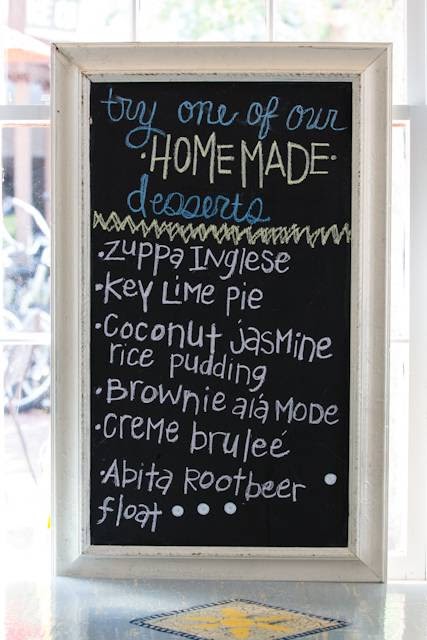 try one of our
·HOMEMADE·
desserts
·Zuppa Inglese
·Key Lime pie
·Coconut jasmine
rice pudding
·Brownie alá MODE
·Creme bruleé
·Abita Rootbeer
float